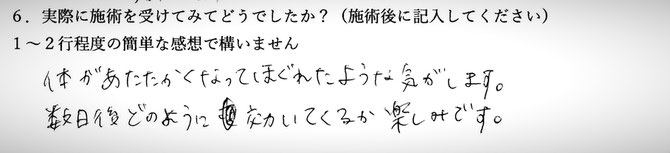 6．実際に施術を受けてみてどうでしたか？（施術後に記入してください）
1～2行程度の簡単な感想で構いません
体があたたかくなってほぐれたような気がします。
数日後どのように効いてくるか楽しみです。